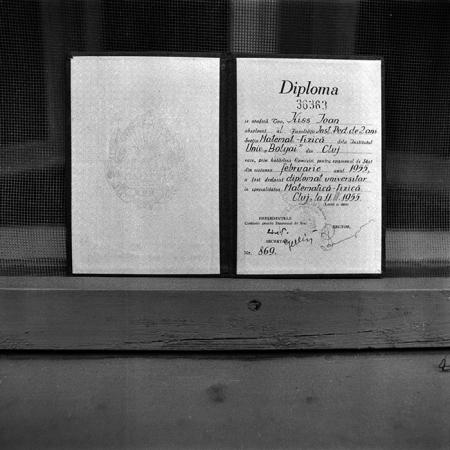 Diploma
36363
se conferă Tov. Kiss Ioan
absolvent al Facultății Inst. Ped. de 2 ani
Secția Matemat-Fizică dela Institutul
Univ. „Bolyai” din Cluj
care, prin hotărîrea Comisiei pentru examenul de Stat
din sesiunea februarie anul 1955,
a fost declarat diplomat universitar
în specialitatea Matematică-fizică.
Cluj, la 11.III.1955.
PREȘEDINTELE
Comisiei pentru Examenul de Stat
RECTOR,
SECRETAR
Nr. 869.